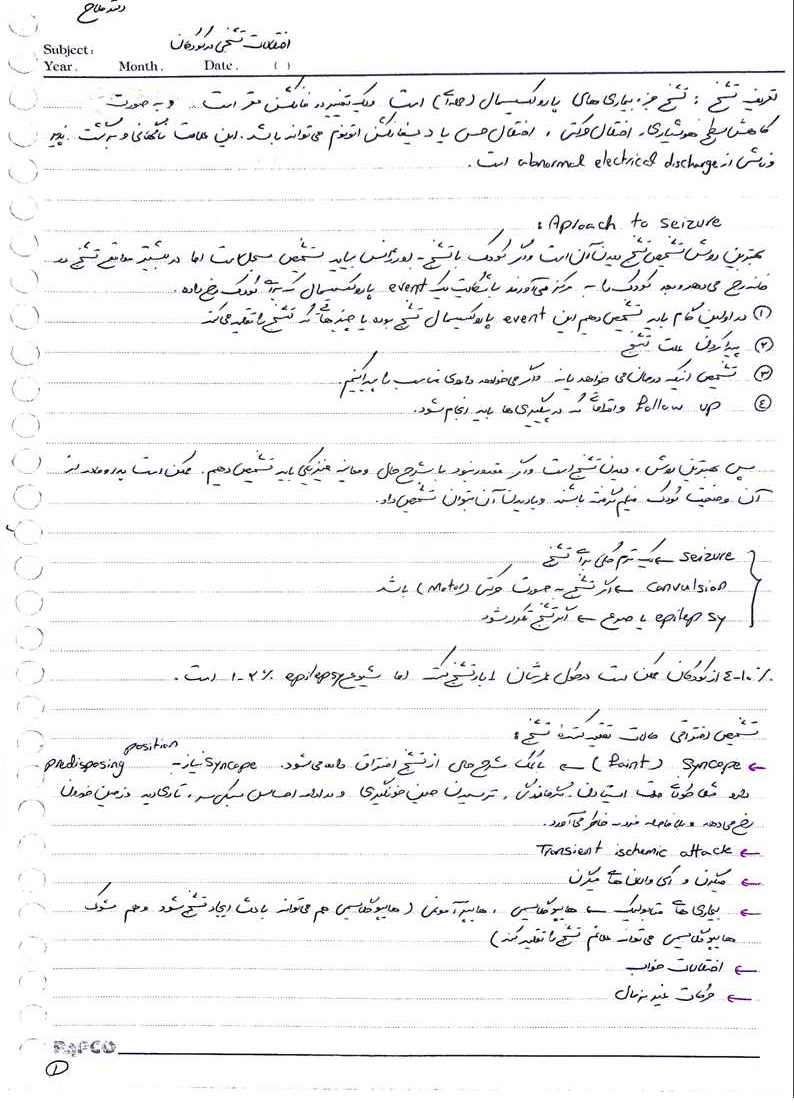 دکتر فلاح
اختلالات تشنجی در کودکان
Subject:
Year. Month. Date. ( )
تعریف تشنج : تشنج جزء بیماری های پاروکسیسمال (حمله ای) است و یک تغییر در فانکشن مغز است و به صورت
کاهش سطح هوشیاری، اختلال حرکتی ، اختلال حسی یا دیسفانکشن اتونوم می تواند باشد. این علامت ناگهانی و برگشت پذیر
و ناشی از abnormal electrical discharge است.
Aproach to seizure :
بهترین روش تشخیص تشنج دیدن آن است و اگر کودک با تشنج به اورژانس بیاید تشخیص مسجل است اما در بیشتر مواقع تشنج در
خانه رخ می دهد و بعد کودک را به مرکز می آورند با شکایت یک event پاروکسیسمال که برای کودک رخ داده.
① در اولین گام باید تشخیص دهیم این event پاروکسیسمال تشنج بوده یا چیزهایی که تشنج را تقلید می کند
② پیدا کردن علت تشنج
③ تشخیص اینکه درمان می خواهد یا نه و اگر می خواهد داروی مناسب را پیدا کنیم.
④ Follow up و اقداماتی که در پیگیری ها باید انجام شود.
پس بهترین روش ، دیدن تشنج است و اگر مقدور نبود با شرح حال و معاینه فیزیکی باید تشخیص دهیم. ممکن است پدر و مادر از
آن وضعیت کودک فیلم گرفته باشند و با دیدن آن بتوان تشخیص داد.
seizure ← یک ترم کلی برای تشنج
convulsion ← اگر تشنج به صورت حرکتی (Motor) باشد
epilepsy یا صرع ← اگر تشنج تکرار شود
٤-١٠٪ از کودکان ممکن است در طول عمرشان ١ بار تشنج کنند اما شیوع epilepsy ١-٢٪ است.
تشخیص افتراقی حالات تقلید کننده تشنج :
← Syncope (Faint) ← با کمک شرح حال از تشنج افتراق داده می شود. Syncope نیاز به predisposing position
دارد مثلا طولانی مدت ایستادن، ترسیدن حین خونگیری و در ادامه احساس سبکی سر، تاری دید و زمین خوردن
رخ می دهد و بلافاصله فرد به خاطر می آورد.
← Transient ischemic attack
← میگرن و اکی والان های میگرن
← بیماری های متابولیک ← هایپوگلایسمی ، هایپرآمونمی (هایپوگلایسمی هم می تواند باعث ایجاد تشنج شود و هم شوک
هایپوگلایسمی می تواند علائم تشنج را تقلید کند)
← اختلالات خواب
← حرکات غیر نرمال
PAPCO
①